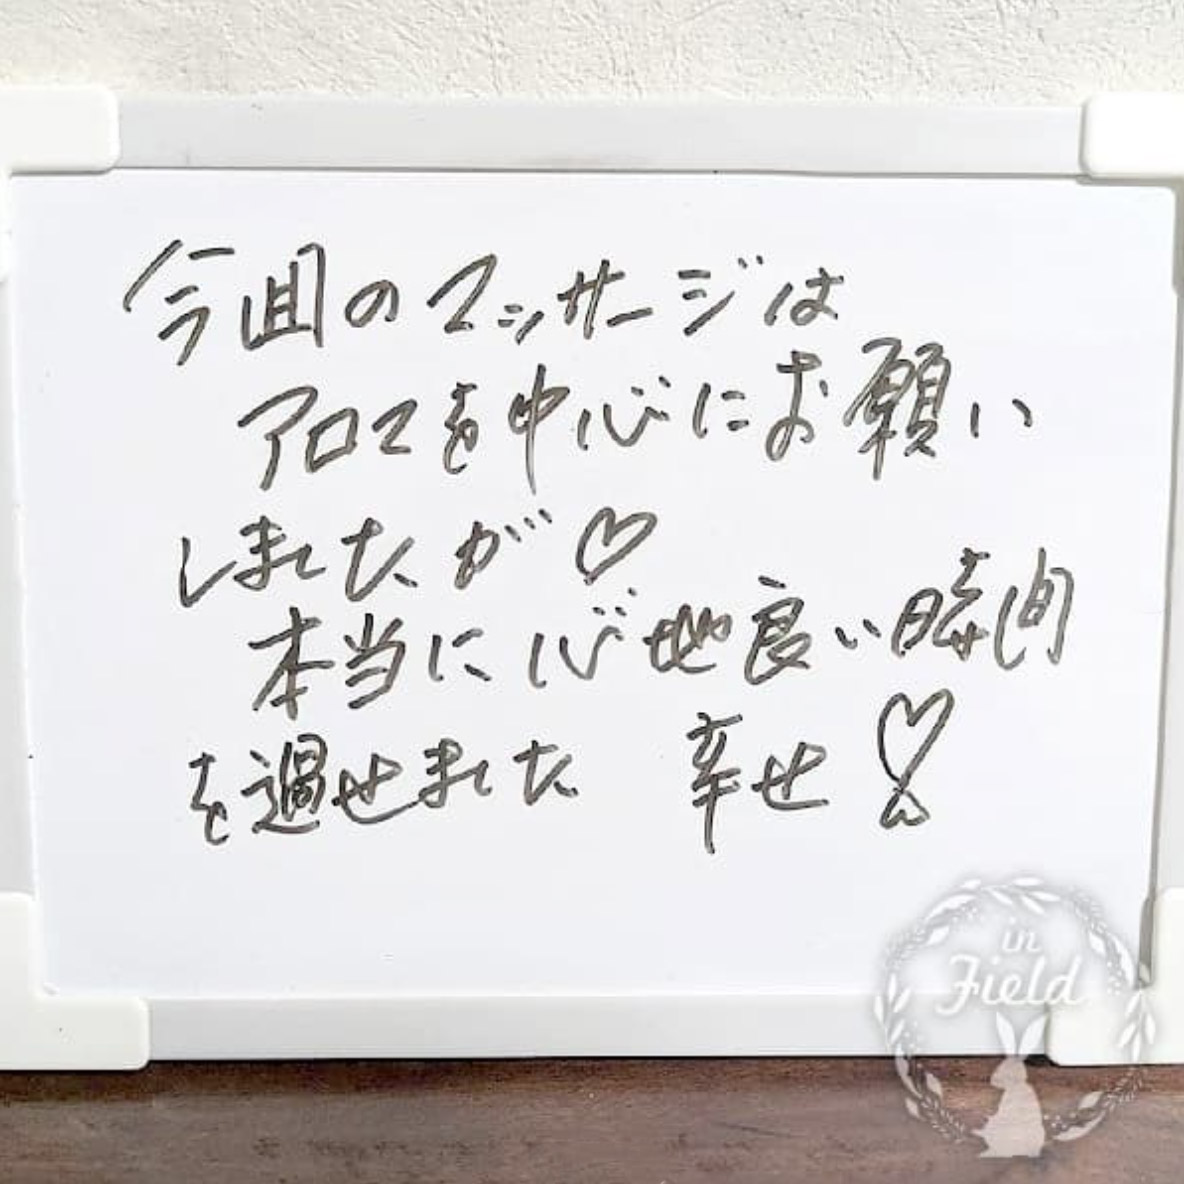 今回のマッサージは
アロマを中心にお願い
しましたが♡
本当に心地良い時間
を過せました 幸せ♡
in
Field